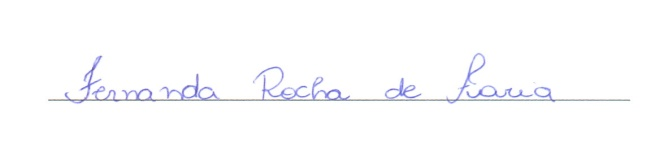 Fernanda Rocha de Faria